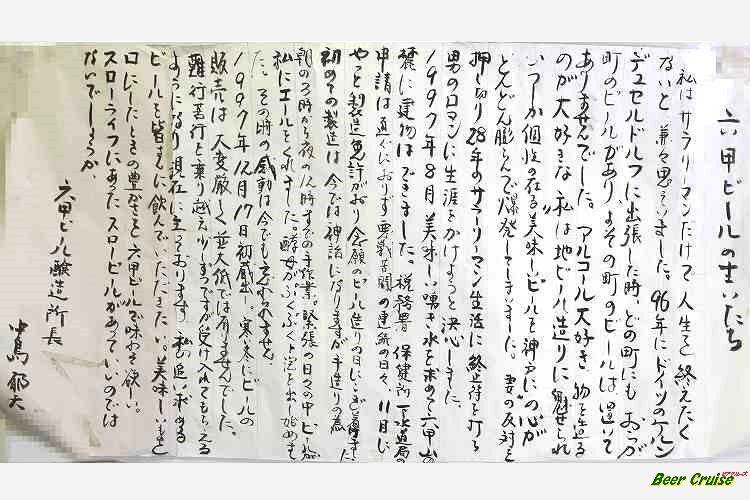 六甲ビールの生いたち
私はサラリーマンだけで人生を終えたく
ないと兼々思えいました。96年にドイツのケルン
デュセルドルフに出張した時、どの町にもおらが
町のビールがあり、よその町のビールは置いて
ありませんでした。アルコール大好き、物を造る
のが大好きな私は地ビール造りに魅せられ
いつしか個性の在る美味しいビールを神戸にの心が
どんどん膨らんで爆発してしまいました。妻の反対を
押し切り28年のサラリーマン生活に終止符を打ち
男のロマンに生涯をかけようと決心しました。
1997年8月美味しい湧き水を求めて六甲山の
麓に建物はできました。税務署 保健所 下水道局の
申請は直ぐにおりず悪戦苦闘の連続の日々、11月に
やっと製造免許がおり念願のビール造りの日にこぎ着けました
初めての製造は今では神話になりますが手造りの為
朝の3時から夜の12時までの手作業。緊張の日々の中
私にエールをくれました。酵母がぷくぷくと泡を出し始めまし
た。その時の感動は今でも忘れられません。
1997年12月17日初蔵出、寒冬にビールの
販売は大変厳しく並大低では有りませんでした。
難行苦行を乗り越え少しずつですが受け入れてもらえる
ようになり現在に至っております。私の追い求める
ビールを皆さまに飲んでいただきたい。美味しいものを
口にしたときの豊かさを六甲ビールで味わって欲しい。
スローライフにあったスロービールがあっていいのでは
ないでしょうか。
六甲ビール醸造所長
中島郁夫
Beer Cruise
ビアクルーズ